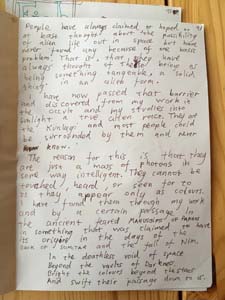 People have always claimed or hoped or
at least thought about the possibility
of alien life out in space but have
never found any because of one basic
problem. That is, that they have
always thought of them being as
being something tangeable, a solid
thing in an such form.
I have now passed that barrier
and discovered from my work in
the occult and my studies into
a true alien race. They are
the Kunligi and most people could
be surrounded by them and never
know.
The reason for this is that they
are just a mass of photons in
some way intelligent. They cannot be
touched, heard or seen as to
us they appear only as colours.
I have found them through my work
and by a certain passage in
the ancient
something that was claimed to have
its origins in the days of the
and the fall of
In the deathless void of space
Beyond the vaults of
Bright the colours beyond the stars
And swift their passage down to us.